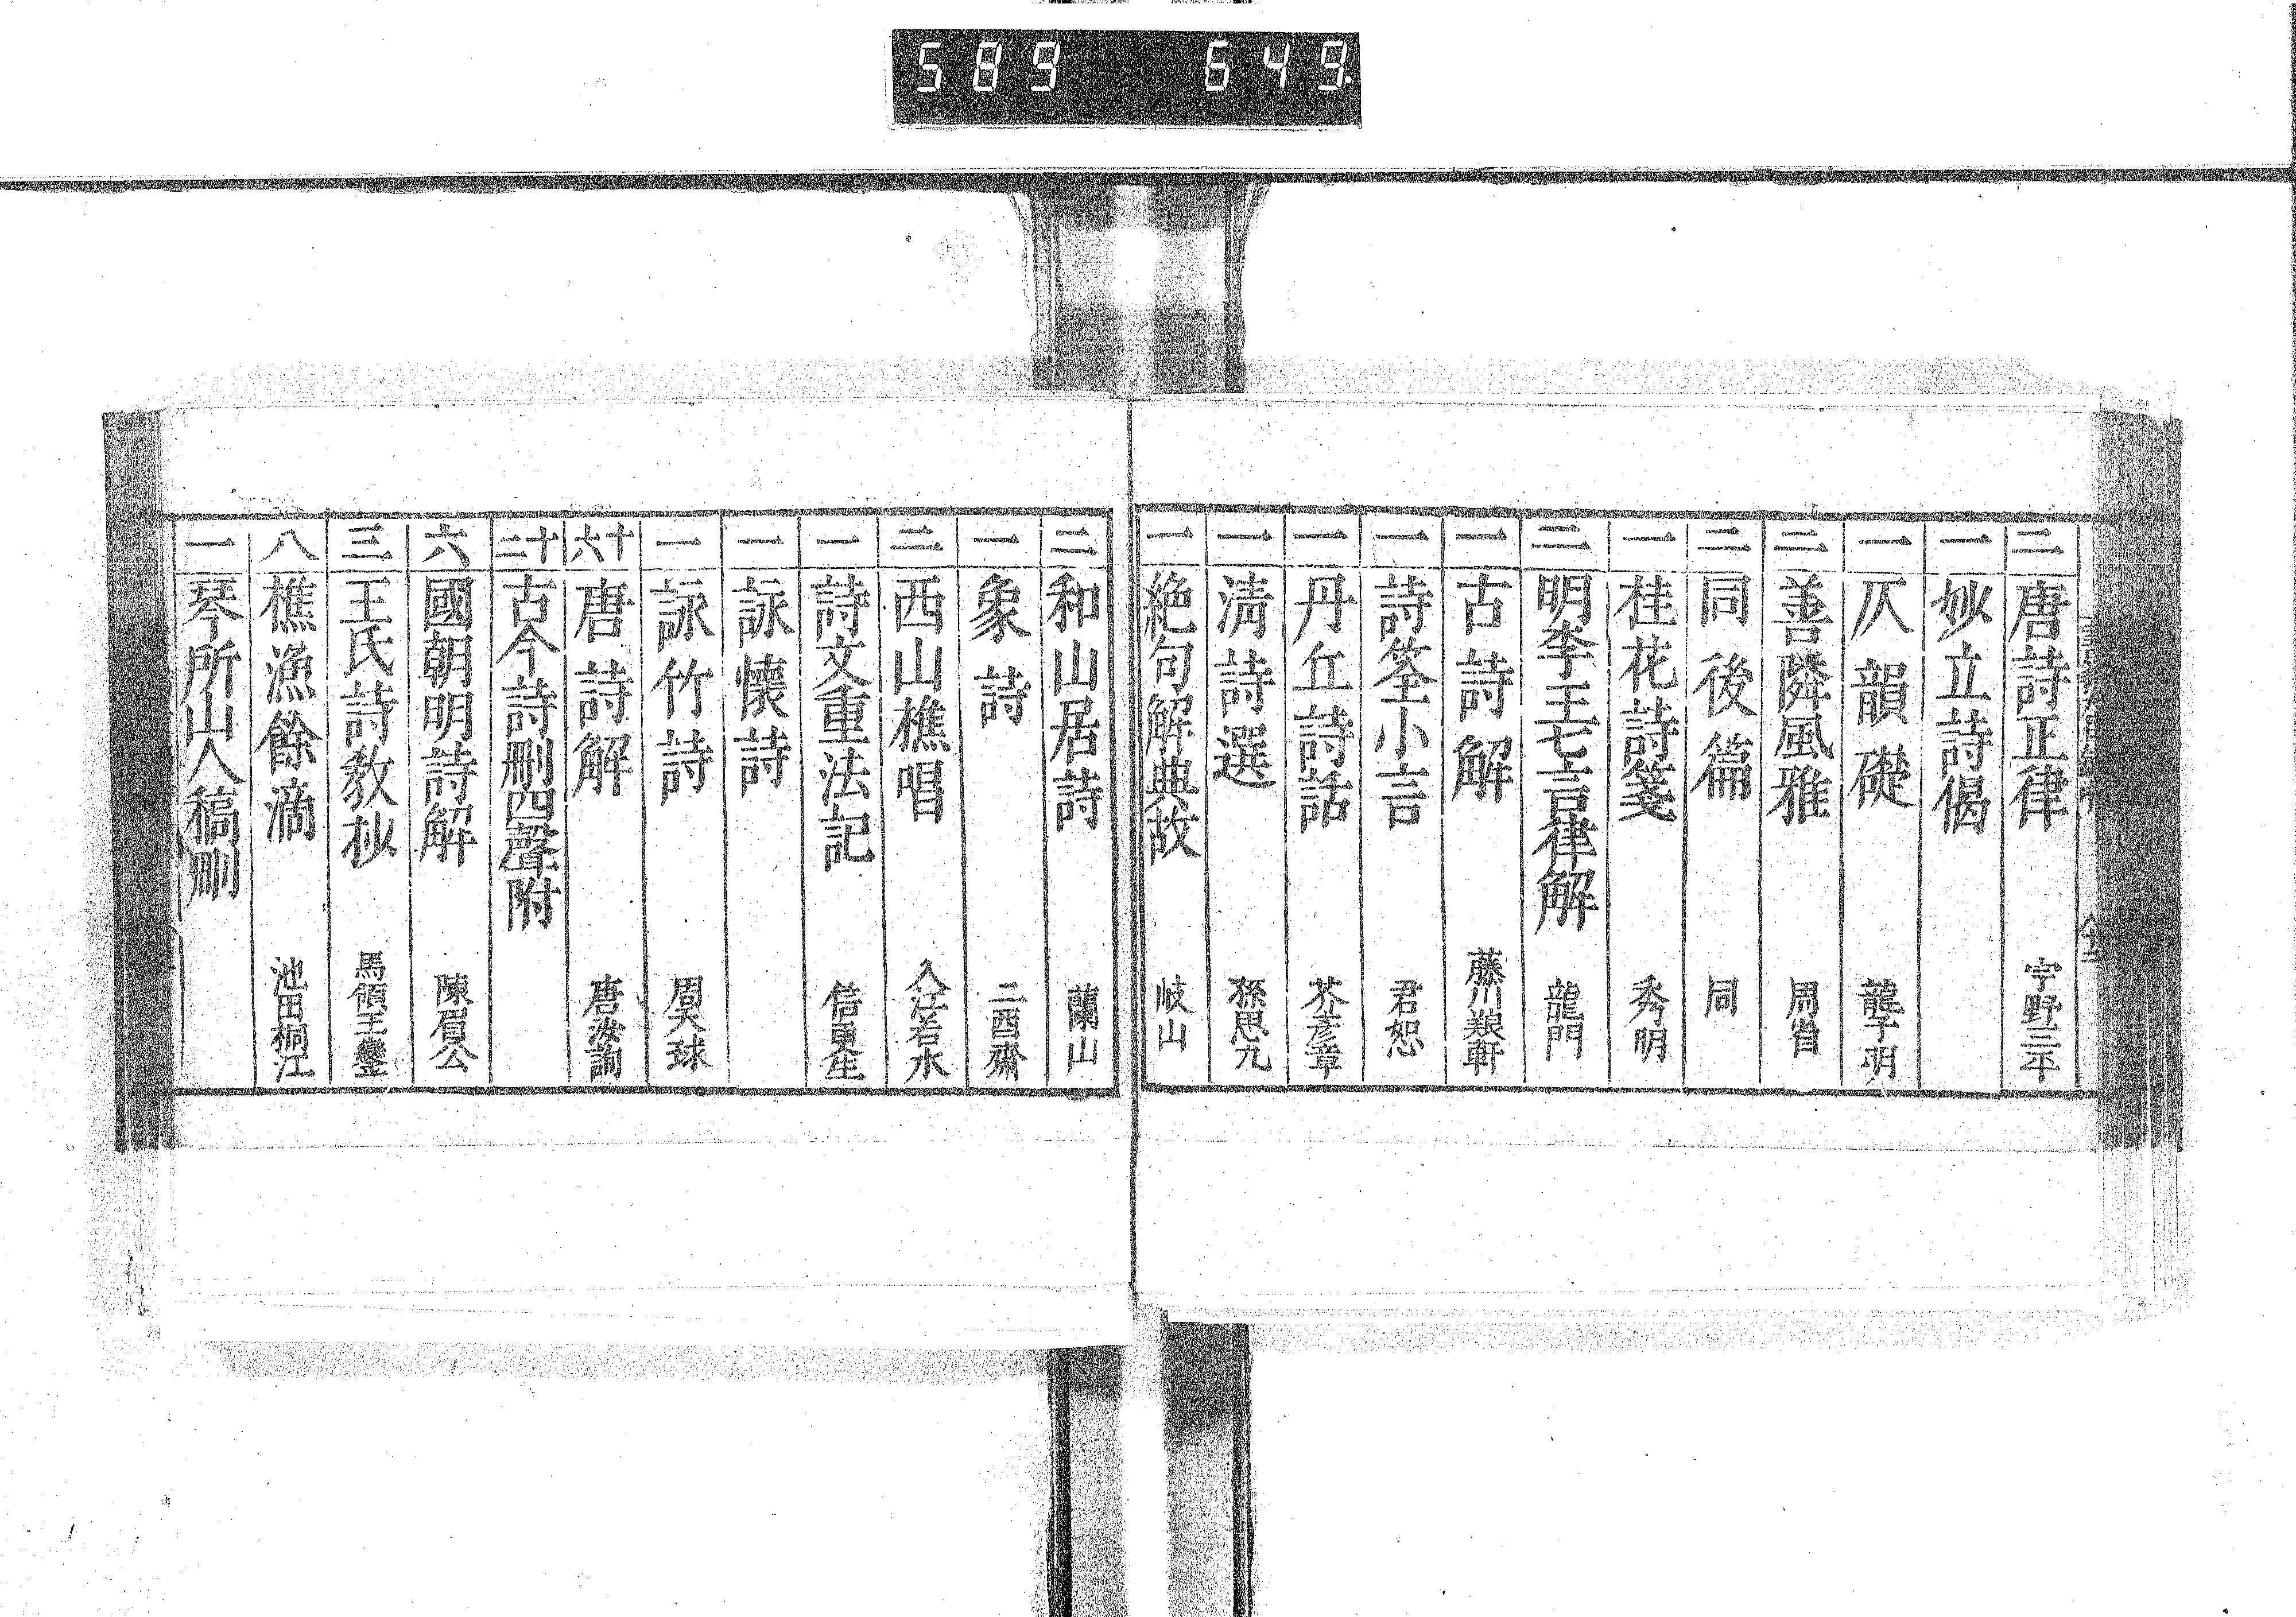 589 649.
二 唐詩正律 宇野三平
一 妙立詩偈
一 仄韻礎 龔子明
二 善隣風雅 周省
二 同後篇 同
一 桂花詩箋 秀明
三 明李王七言律解 龍門
一 古詩解 藤川
一 詩筌小言 君恕
一 丹丘詩話 芥彦章
一 淸詩選 孫思九
一 絶句解典故 岐山
二 和山居詩 蘭山
一 象詩 二酉齋
二 西山樵唱 入江若水
一 詩文重法記 信更生
一 詠懷詩
一 詠竹詩 周天球
十六 唐詩解 唐汝詢
十二 古今詩刪四聲附
六 國朝明詩解 陳眉公
三 王氏詩教抄 馬領王
八 樵漁餘滴 池田桐江
一 琴所山人稿刪